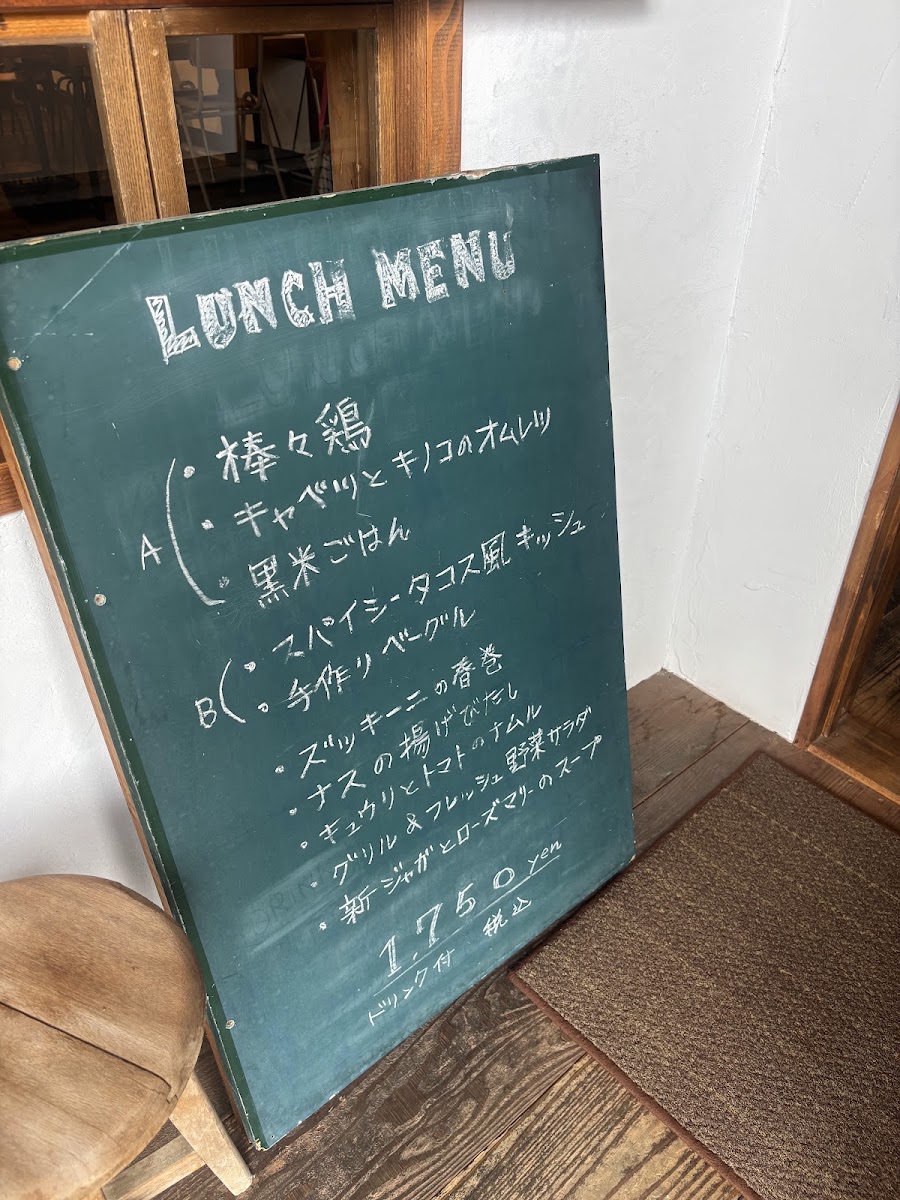 LUNCH MENU
A
・棒々鶏
・キャベツとキノコのオムレツ
・黒米ごはん
B
・スパイシータコス風キッシュ
・手作りベーグル
・ズッキーニの春巻
・ナスの揚げびたし
・キュウリとトマトのナムル
・グリル&フレッシュ野菜サラダ
・新ジャガとローズマリーのスープ
1.750yen
ドリンク付 税込